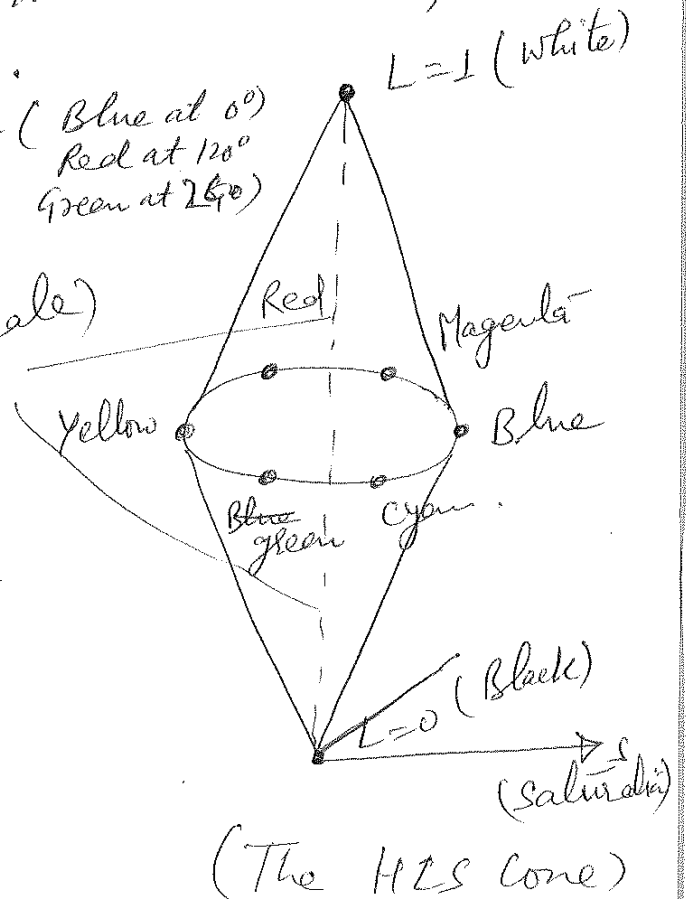 L=1 (White)
( Blue at 0°)
Red at 120°
Green at 240)
ale)
Red
Magenta
Yellow
Blue
Blue
green
Cyan.
L=0 (Black)
S
(Saturation)
(The HLS Cone)